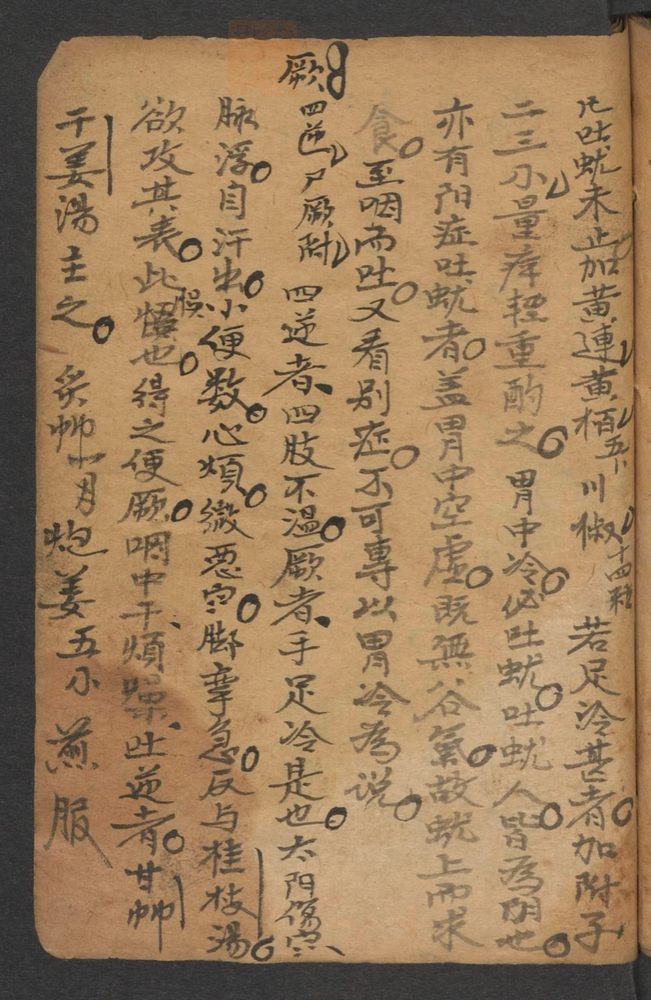 凡吐蚘未止加黄連黄栢五卜川椒十四粒 若足冷甚者加附子
二三小量疾輕重酌之 胃中冷必吐蚘吐蚘人皆為阴也
亦有阳症吐蚘者盖胃中空虚既無谷氣故蚘上而求
食至咽而吐又看别症不可專以胃冷為说
厥四逆尸厥附 四逆者四肢不温厥者手足冷是也太阳傷寒
脉浮自汗出小便数心煩微惡寒脚挛急反与桂枝湯
欲攻其表此悮也得之便厥咽中干煩躁吐逆者甘艸
誤
干姜湯主之 炙艸 炮姜五小 煎服